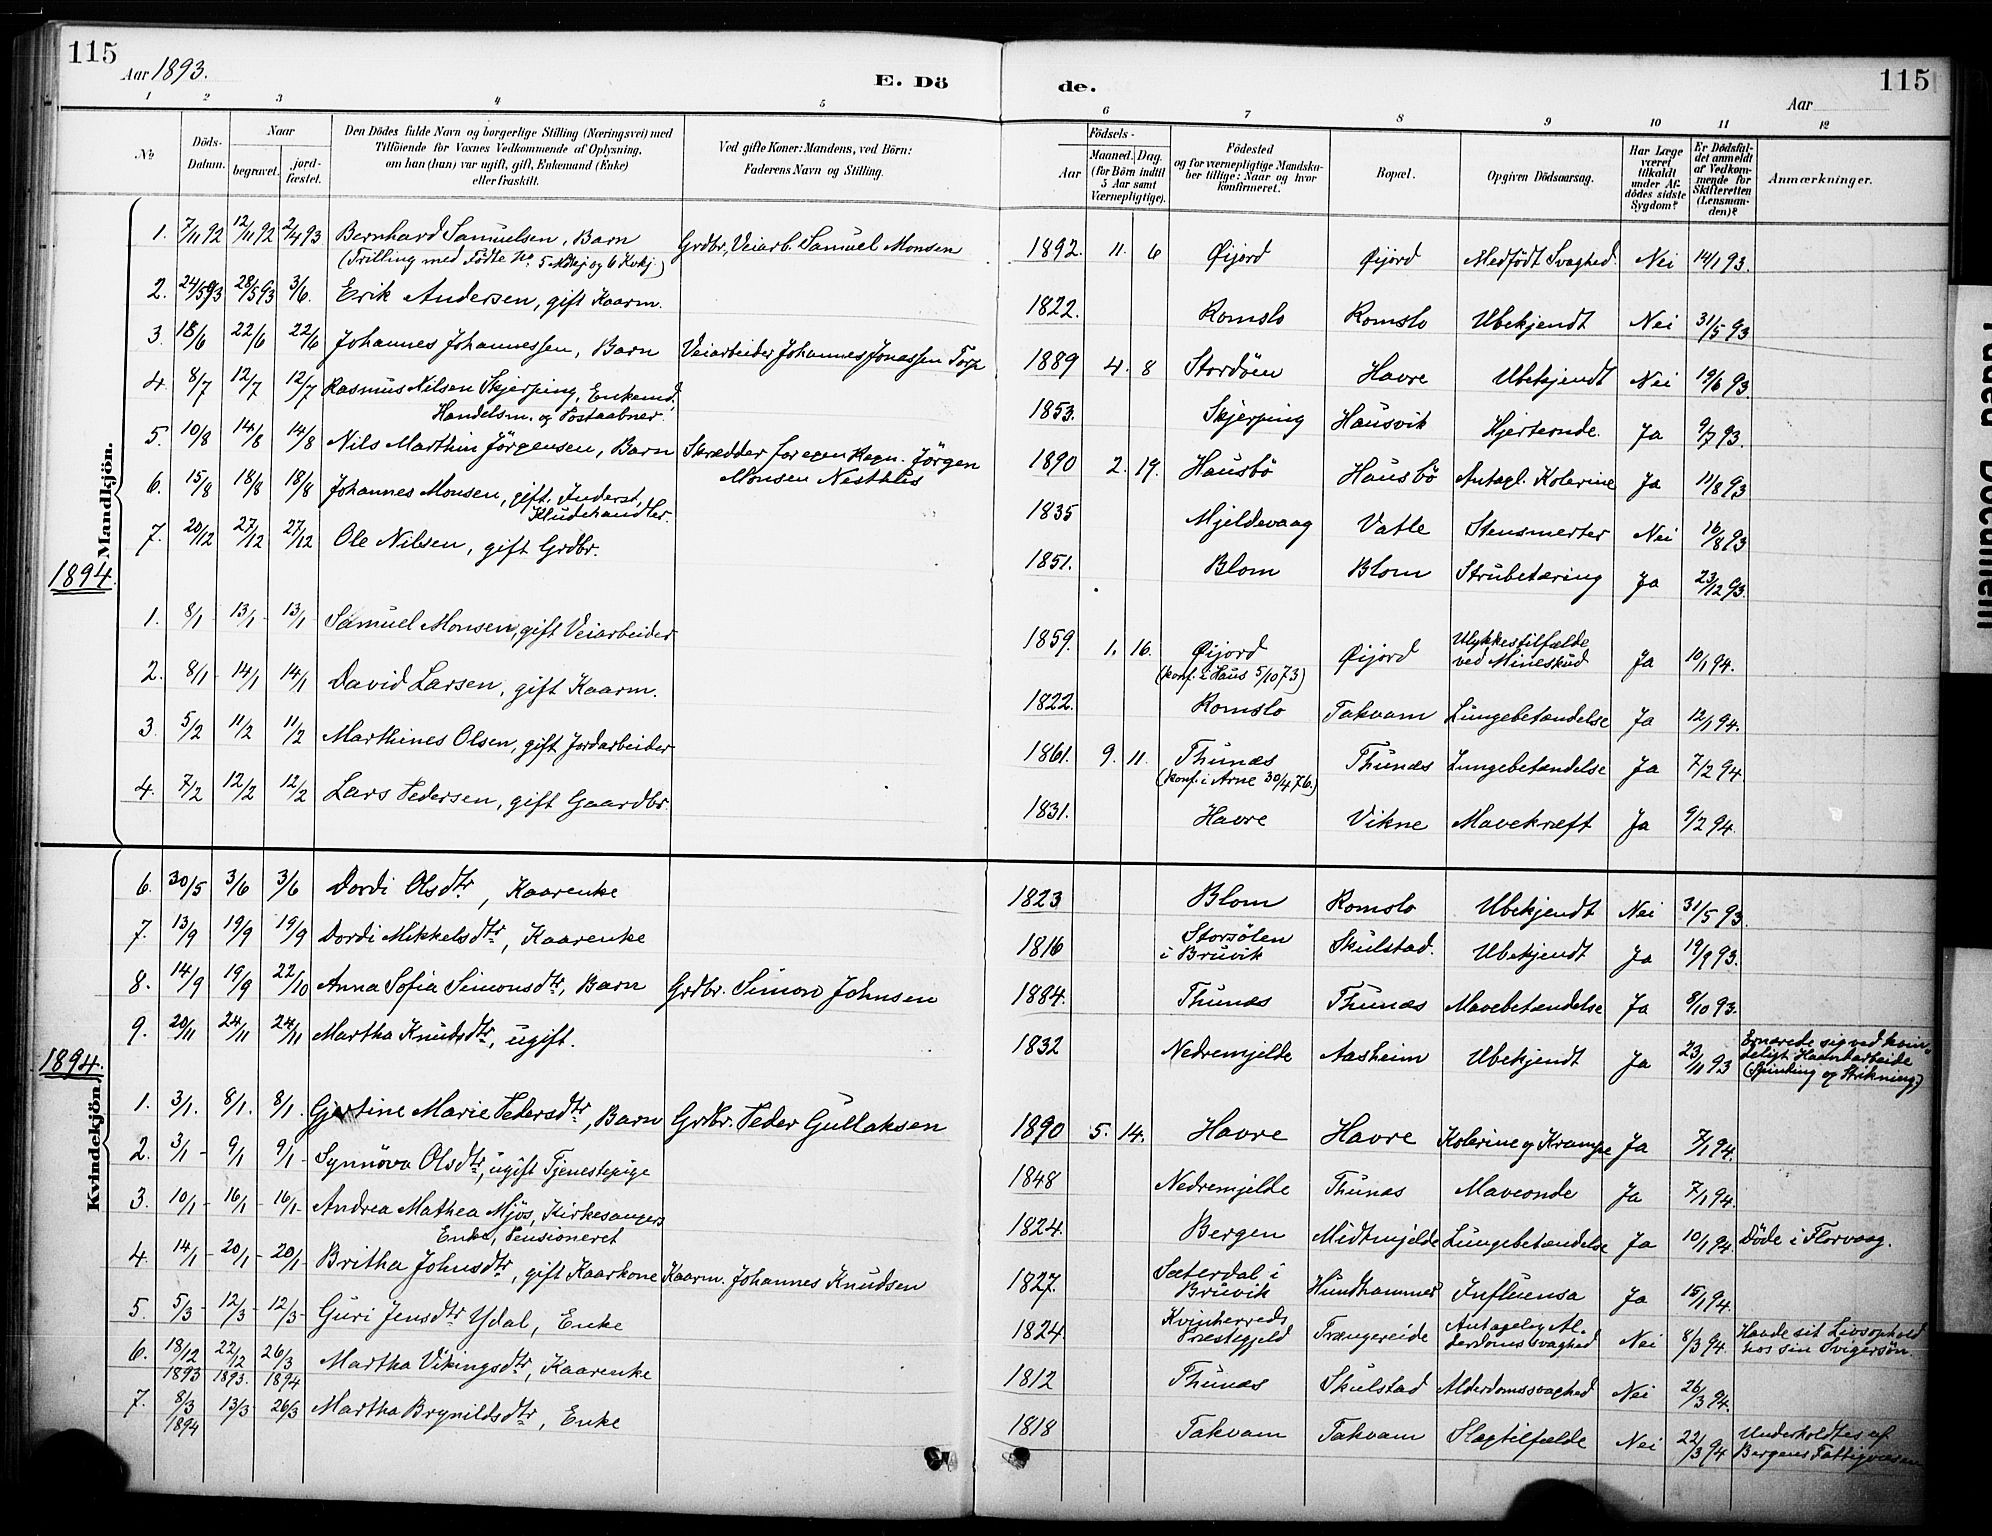 115
Aar 1893.
E. Dö
de.
Aar
115
1 2 3 4 5 6 7 8 9 10 11 12
No
Döds-Datum.
Naar
begravet.
jord-fæstet.
Den Dödes fulde Navn og borgerlige Stilling (Næringsvei) med
Tilföiende for Voxnes Vedkommende af Oplysning,
om han (hun) var ugift, gift, Enkemand (Enke)
eller fraskilt.
Ved gifte Koner: Mandens, ved Börn:
Faderens Navn og Stilling.
Födsels-
Aar
Maaned.
Dag.
(for Börn indtil
5 Aar samt
Værnepligtige).
Födested
og for værnepligtige Mandska-
ber tillige: Naar og hvor
konfirmeret.
Bopæl.
Opgiven Dödsaarsag.
Har Læge
været
tilkaldt
under Af-
dödes sidste
Sygdom?
Er Dödsfal-
det anmeldt
af Vedkom-
mende for
Skifteretten
(Lensman-
den)?
Anmærkninger.
Mandkjön.
1. 7/11 92 12/11 92 2/4 93 Bernhard Samuelsen, Barn Grdbr, Veiarb. Samuel Monsen 1892. 11. 6 Øijord Øijord Medfödt Svaghed. Nei 14/1 93.
(Trilling med Födte No. 5 Mdkj. og 6 Kvkj.)
2. 24/5 93 28/5 93 3/6. Erik Andersen, gift Kaarm. 1822. Romslo Romslo Ubekjendt Nei 31/5 93
3. 18/6 22/6 22/6 Johannes Johannessen, Barn Veiarbeider Johannes Jonassen Torp 1889 4. 8 Stordöen Havre Ubekjendt Nei 19/6 93.
4. 8/7 12/7 12/7 Rasmus Nilsen Skjerping, Enkemd. 1853. Skjerping Hausvik Hjerteonde. Ja 9/7 93.
Handelsm. og Postaabner
5. 10/8 14/8 14/8 Nils Marthin Jörgensen, Barn Skrædder for egen Regn. Jörgen 1890 2. 19. Hausbö Hausbö Antagl. Kolerine Ja 11/8 93
Monsen Nesthus
6. 15/8 18/8 18/8 Johannes Monsen, gift. Inderst, 1835 Mjeldevaag Vatle Stensmerter Nei 16/8 93
Kludehandler.
7. 20/12 27/12 27/12 Ole Nilsen, gift Grdbr. 1851. Blom Blom Strubetæring Ja 23/12 93.
1894.
1. 8/1 - 13/1 - 13/1 Samuel Monsen, gift Veiarbeider 1859. 1. 16. Øijord Øijord Ulykkestilfælde Ja 10/1 94.
(konf. i Haus 5/10 73) ved Mineskud
2. 8/1 - 14/1 14/1 David Larsen, gift Kaarm. 1822. Romslo Takvam Lungebetændelse Ja 12/1 94.
3. 5/2 11/2 11/2 Marthines Olsen, gift Jordarbeider 1861. 9. 11. Thunæs Thunæs Lungebetændelse Ja 7/2 94.
(konf. i Arne 30/4 76.)
4. 7/2 12/2 12/2 Lars Pedersen, gift Gaardbr. 1831. Havre Vikne Mavekræft Ja 9/2 94.
Kvindekjön.
6. 30/5 3/6 3/6 Dordi Olsdtr, Kaarenke 1823 Blom Romslo Ubekjendt Nei 31/5 93.
7. 13/9 19/9 19/9 Dordi Mikkelsdtr, Kaarenke 1816 Storsölen Skulstad. Ubekjendt Ja 19/9 93.
i Bruvik
8. 14/9 19/9 22/10 Anna Sofia Simonsdtr, Barn Grdbr. Simon Johnsen 1884. Thunæs Thunæs Mavebetændelse Ja 8/10 93.
9. 20/11 24/11 24/11 Martha Knudsdtr, ugift. 1832 Nedremjelde Aasheim Ubekjendt Ja 23/11 93 Ernærede sig ved kvin-
deligt Haandarbeide
(Spinding og Strikning)
1894.
1. 3/1. 8/1. 8/1. Gjertine Marie Pedersdtr, Barn Grdbr. Peder Gullaksen 1890 5. 14. Havre Havre Kolerine og Krampe Ja 7/1 94.
2. 3/1 - 9/1 9/1 - Synnöva Olsdtr, ugift Tjenestepige 1848 Nedremjelde Thunæs Maveonde Ja 7/1 94.
3. 10/1 - 16/1 - 16/1 - Andrea Mathea Mjös, Kirkesangers 1824. Bergen Midtmjelde Lungebetændelse Ja 10/1 94. Döde i Florvaag.
Enke, Pensioneret
4. 14/1 - 20/1 - 20/1 - Britha Johnsdtr, gift Kaarkone Kaarm. Johannes Knudsen 1827. Sæterdal i Hundhammer Influensa Ja 15/1 94.
Bruvik
5. 5/3 - 12/3 - 12/3 - Guri Jensdtr Ydal, Enke 1824. Kvinherreds Trængereide Antagelig Al- Nei 8/3 94. Havde sit Livsophold
Præstegjeld derdomssvaghed hos sin Svigersön
6. 18/12 1893 22/12 1893. 26/3 1894 Martha Vikingsdtr, Kaarenke 1812 Thunæs Skulstad Alderdomssvaghed Nei 26/3 94.
7. 8/3 1894 13/3 26/3 Martha Brynildsdtr, Enke 1818 Takvam Takvam Slagtilfælde Nei 22/3 94 Underholdtes af
Bergens Fattigvæsen